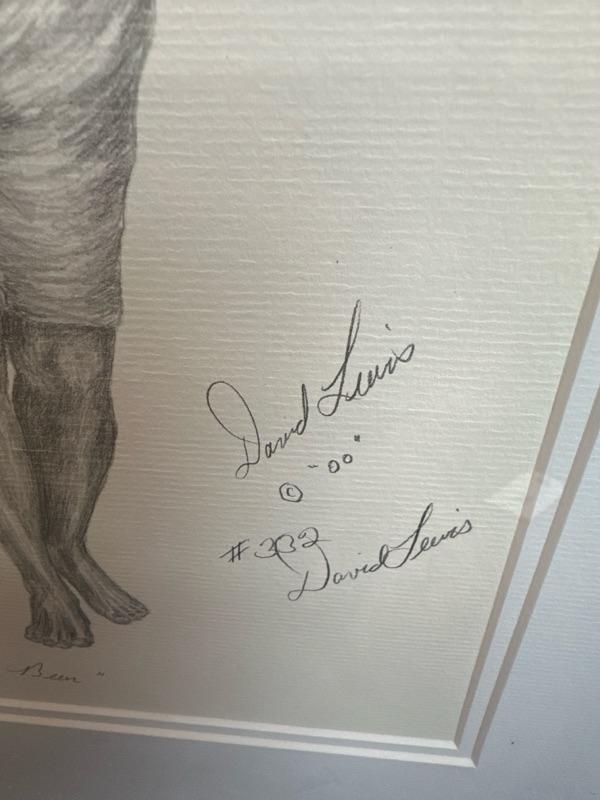 David Lewis
© "00"
#332
David Lewis
Been"